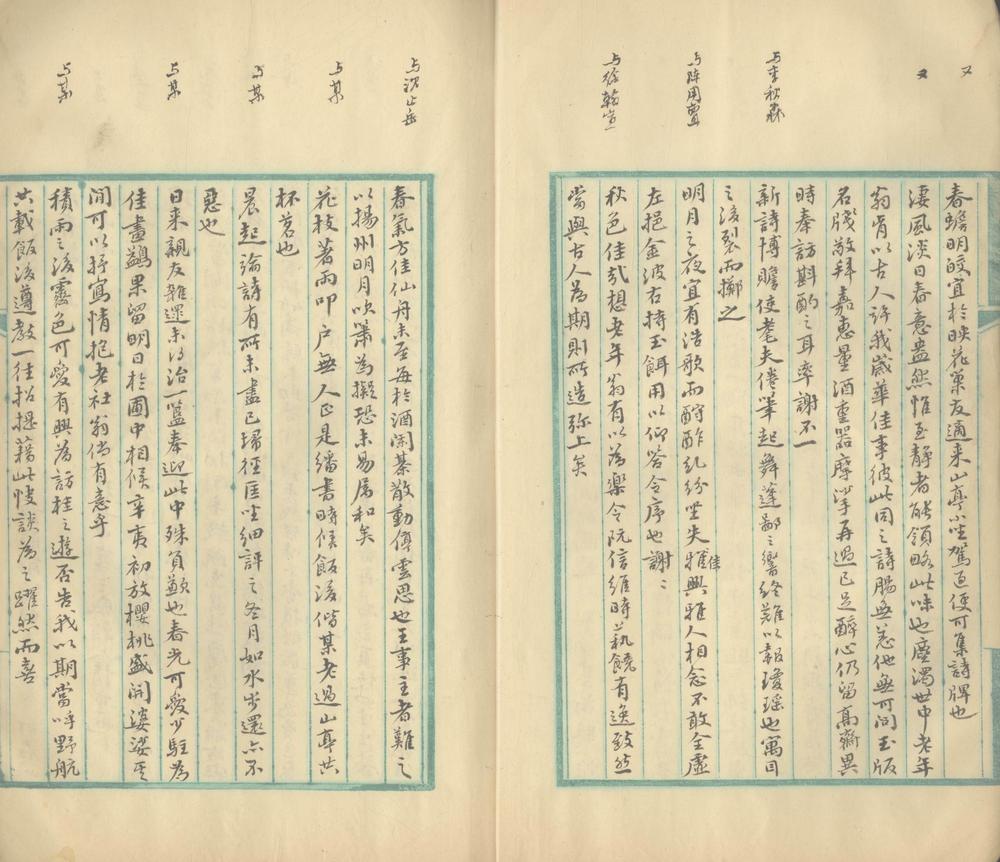 又
春蟾明皎宜於映花窠友適来山亭小坐駕迫便可集詩牌也
又
淒風淡日春意盎然惟至靜者能領略此味也塵濁世中老年
翁肯以古人許我歲華佳事彼此同之詩腸無恙他無可問玉版
名牋敬拜嘉惠量酒重器摩挲再過已足醉心仍留高齋異
時奉訪斟酌之耳率謝不一
与李秋森
新詩博贍使耄夫倦筆起舞蓬鄙之響終難以報瓊瑶也寓目
之後裂而擲之
与陈用亶
明月之夜宜有浩歌而酧酢乱紛坐失佳興雅人相念不敢全虛
左挹金波右持玉餌用以仰答令序也謝〻
与徐翰宣
秋色佳哉想老年翁有以為樂令阮信維時萟饒有逸致然
當與古人為期則所造弥上矣
与沈止岳
春氣方佳仙舟未至每於酒闌棊散動停雲思也王事主者難之
以揚州明月吹簫為擬恐未易属和矣
与某
花枝著雨叩户無人正是繙書時候飯後偕某老過山亭共
杯茗也
与某
晨起論詩有所未盡已掃徑匡坐細評之冬月如水步還亦不
惡也
与某
日来親友雜遝未得治一簋奉迎此中殊負歉也春光可愛少駐為
佳畫鷁果留明日於圃中相候辛夷初放櫻桃盛開婆娑其
間可以抒寫情抱老社翁尚有意乎
与某
積雨之後霽色可愛有興為訪桂之遊否告我以期當呼野航
共載飯後遵教一往招提藉此快談為之躍然而喜